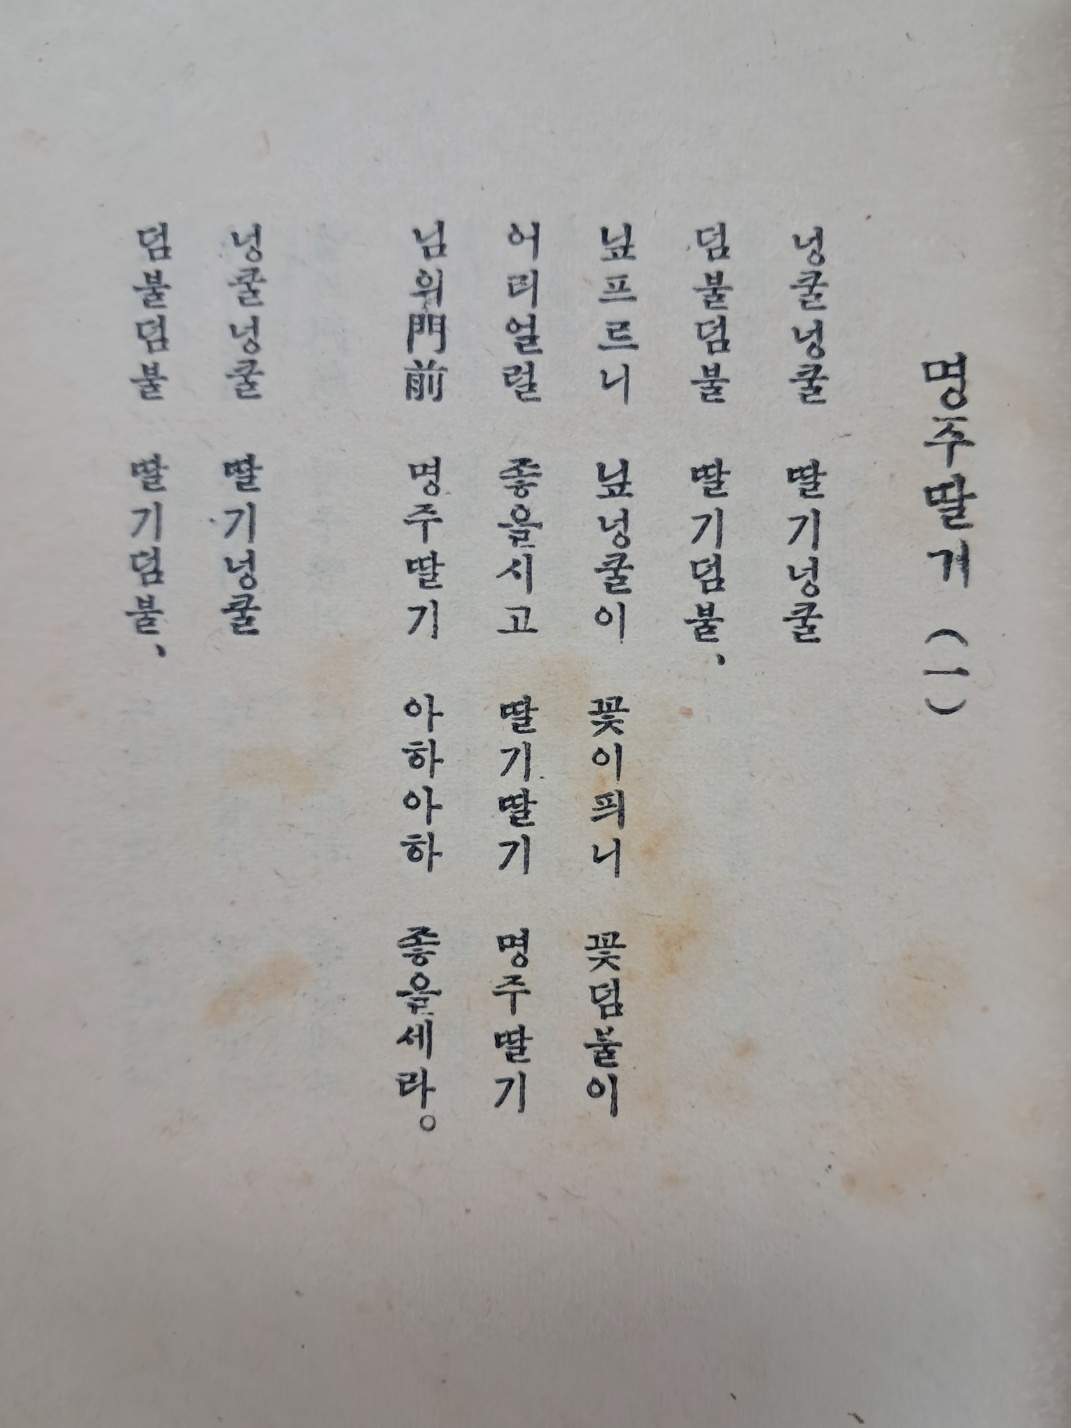 명주딸기 (一)
넝쿨넝쿨 딸기넝쿨
덤불덤불 딸기덤불、
닢프르니 닢넝쿨이 꽃이픠니 꽃덤불이
어리얼럴 좋을시고 딸기딸기 명주딸기
님의門前 명주딸기 아하아하 좋을세라。
넝쿨넝쿨 딸기넝쿨
덤불덤불 딸기덤불、